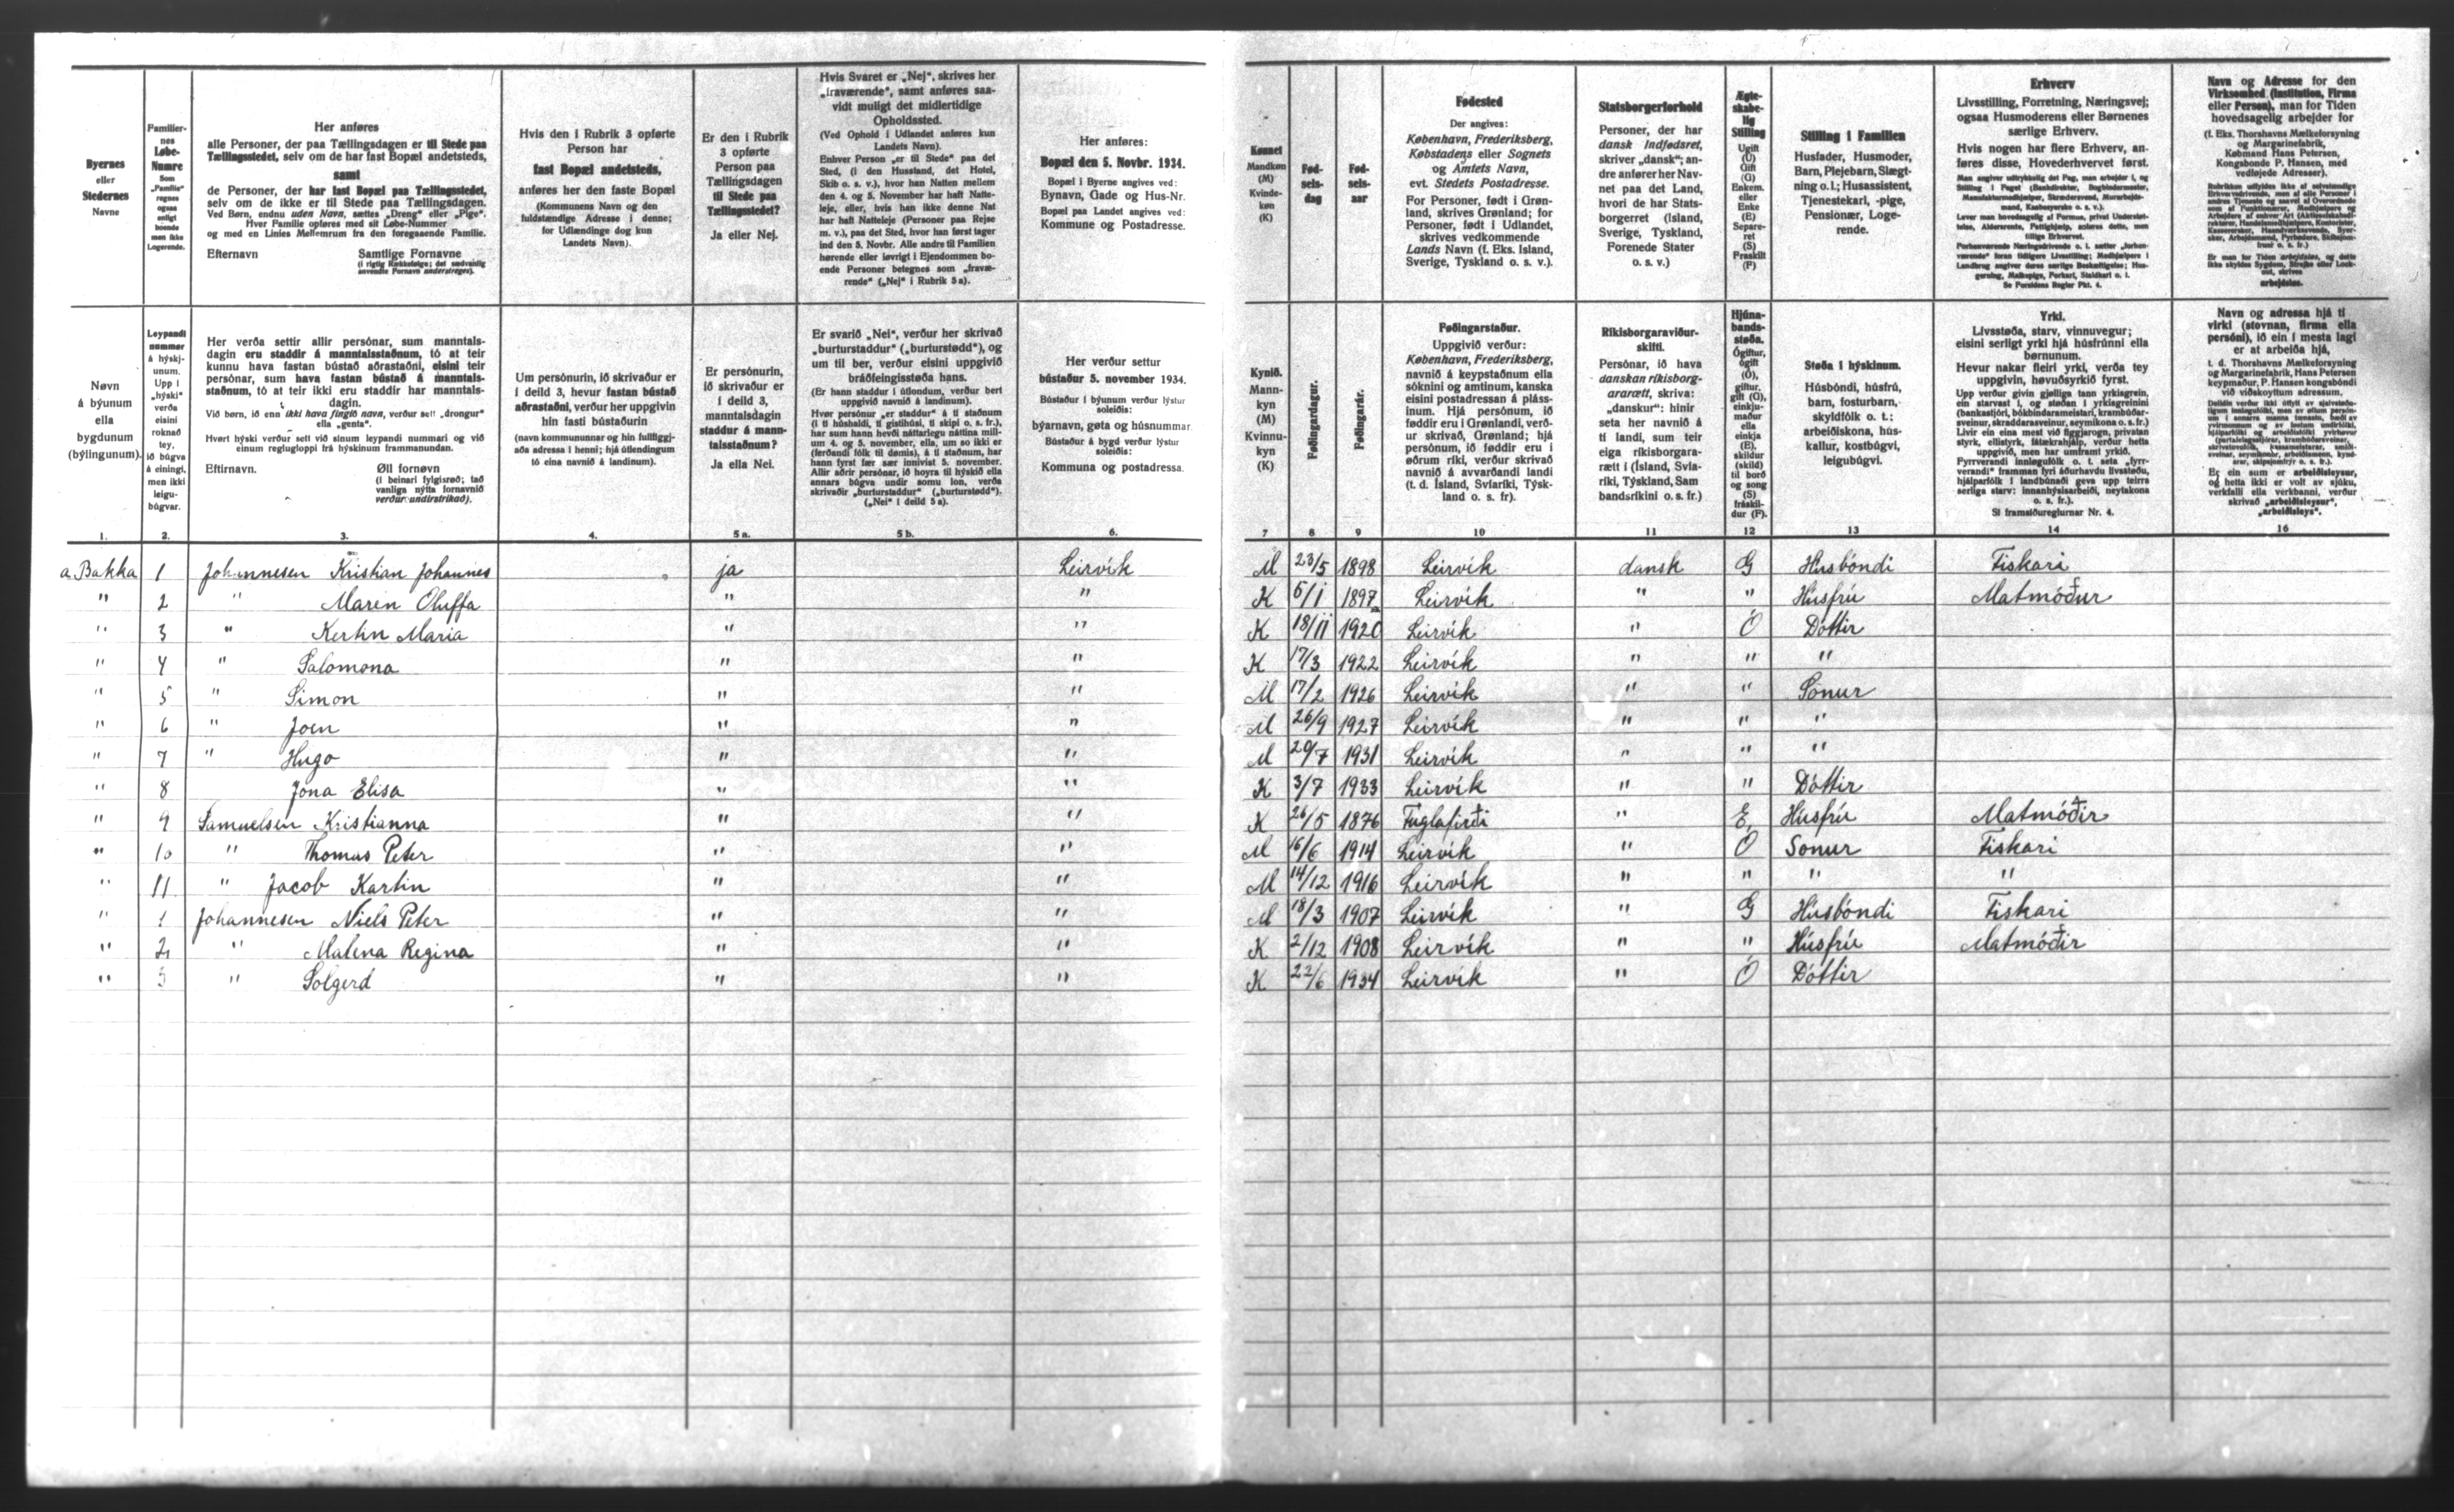 Byernes
eller
Stedernes
Navne
Familier-
nes
Løbe-
Numre
Som
„Familie“
regnes
ogsaa
enligt
boende
men ikke
Logerende.
Her anføres
alle Personer, der paa Tællingsdagen er til Stede paa
Tællingsstedet, selv om de har fast Bopæl andetsteds,
samt
de Personer, der har fast Bopæl paa Tællingsstedet,
selv om de ikke er til Stede paa Tællingsdagen.
Ved Børn, endnu uden Navn, sættes „Dreng“ eller „Pige“.
Hver Familie opføres med sit Løbe-Nummer
og med en Linies Mellemrum fra den foregaaende Familie.
Efternavn Samtlige Fornavne
(i rigtig Rækkefølge; det sædvanlig
anvendte Fornavn understreges).
Hvis den i Rubrik 3 opførte
Person har
fast Bopæl andetsteds,
anføres her den faste Bopæl
(Kommunens Navn og den
fuldstændige Adresse i denne;
for Udlændinge dog kun
Landets Navn).
Er den i Rubrik
3 opførte
Person paa
Tællingsdagen
til Stede paa
Tællingsstedet?
Ja eller Nej.
Hvis Svaret er „Nej“, skrives her
„fraværende“, samt anføres saa-
vidt muligt det midlertidige
Opholdssted.
(Ved Ophold i Udlandet anføres kun
Landets Navn).
Enhver Person „er til Stede“ paa det
Sted, (i den Husstand, det Hotel,
Skib o. s. v.), hvor han Natten mellem
den 4. og 5. November har haft Natte-
leje, eller, hvis han ikke denne Nat
har haft Natteleje (Personer paa Rejse
m. v.), paa det Sted, hvor han først tager
ind den 5. Novbr. Alle andre til Familien
hørende eller iøvrigt i Ejendommen bo-
ende Personer betegnes som „fravæ-
rende“ („Nej“ i Rubrik 5 a).
Her anføres:
Bopæl den 5. Novbr. 1934.
Bopæl i Byerne angives ved:
Bynavn, Gade og Hus-Nr.
Bopæl paa Landet angives ved:
Kommune og Postadresse.
Kønnet
Mandkøn
(M)
Kvinde-
køn
(K)
Fød-
sels-
dag
Fød-
sels-
aar
Fødested
Der angives:
København, Frederiksberg,
Købstadens eller Sognets
og Amtets Navn,
evt. Stedets Postadresse.
For Personer, født i Grøn-
land, skrives Grønland; for
Personer, født i Udlandet,
skrives vedkommende
Lands Navn (f. Eks. Island,
Sverige, Tyskland o. s. v.).
Statsborgerforhold
Personer, der har
dansk Indfødsret,
skriver „dansk“; an-
dre anfører her Nav-
net paa det Land,
hvori de har Stats-
borgerret (Island,
Sverige, Tyskland,
Forenede Stater
o. s. v.)
Ægte-
skabe-
lig
Stilling
Ugift
(U)
Gift
(G)
Enkem.
eller
Enke
(E)
Separe-
ret
(S)
Fraskilt
(F)
Stilling i Familien
Husfader, Husmoder,
Barn, Plejebarn, Slægt-
ning o. l.; Husassistent,
Tjenestekarl, -pige,
Pensionær, Loge-
rende.
Erhverv
Livsstilling, Forretning, Næringsvej;
ogsaa Husmoderens eller Børnenes
særlige Erhverv.
Hvis nogen har flere Erhverv, an-
føres disse, Hovederhvervet først.
Se Forsidens Regler Pkt. 4.
Navn og Adresse for den
Virksomhed (Institution, Firma
eller Person), man for Tiden
hovedsagelig arbejder for
(f. Eks. Thorshavns Mælkeforsyning
og Margarinefabrik,
Købmand Hans Petersen,
Kongsbonde P. Hansen, med
vedløjede Adresser).
arbejdsløs.
Nøvn
á býunum
ella
bygdunum
(býlingunum).
Leypandi
nummar
á hýskj-
unum.
Upp í
„hýski“
verða
eisini
roknað
tey,
ið búgva
á einingi,
men ikki
leigu-
búgvar.
Her verða settir allir persónar, sum manntals-
dagin eru staddir á manntalsstaðnum, tó at teir
kunnu hava fastan bústað aðrastaðni, eisini teir
persónar, sum hava fastan bústað á manntals-
staðnum, tó at teir ikki eru staddir har manntals-
dagin.
Við børn, ið enn ikki hava fingið navn, verður sett „drongur“
ella „genta“.
Hvørt hýski verður sett við sínum leypandi nummari og við
einum reglugloppi frá hýskinum frammanundan.
Eftirnavn. Øll fornøvn
(í beinari fylgisrøð; tað
vanliga nýtta fornavnið
verður undirstrikað).
Um persónurin, ið skrivaður er
í deild 3, hevur fastan bústað
aðrastaðni, verður her uppgivin
hin fasti bústaðurin
(navn kommununnar og hin fullfiggj-
aða adressa í henni; hjá útlendingum
tó eina navnið á landinum).
Er persónurin,
ið skrivaður er
í deild 3,
manntalsdagin
staddur á mann-
talsstaðnum?
Ja ella Nei.
Er svarið „Nei“, verður her skrivað
„burturstaddur“ („burturstødd“), og
um til ber, verður eisini uppgivið
bráðfeingisstøða hans.
(Er hann staddur í útlondum, verður bert
uppgivið navnið á landinum).
Hvør persónur „er staddur“ á tí staðnum
(í tí húshaldi, tí gistihúsi, tí skipi o. s. fr.),
har sum hann hevði náttarlegu náttina mill-
um 4. og 5. november, ella, um so ikki er
(ferðandi fólk til dømis), á tí staðnum, har
hann fyrst fær sær innivist 5. november.
Allir aðrir persónar, ið hoyra til hýskið ella
annars búgva undir somu lon, verða
skrivaðir „burturstaddur“ („burturstødd“).
(„Nei“ í deild 5 a).
Her verður settur
bústaður 5. november 1934.
Bústaður í býunum verður lýstur
soleiðis:
býarnavn, gøta og húsnummar.
Bústaður á bygd verður lýstur
soleiðis:
Kommuna og postadressa.
Kynið.
Mann-
kyn
(M)
Kvinnu-
kyn
(K)
Føðingardagur.
Føðingarár.
Føðingarstaður.
Uppgivið verður:
København, Frederiksberg,
navnið á keypstaðnum ella
sóknini og amtinum, kanska
eisini postadressan á pláss-
inum. Hjá persónum, ið
føddir eru í Grønlandi, verð-
ur skrivað, Grønland; hjá
persónum, ið føddir eru í
øðrum ríki, verður skrivað
navnið á avvarðandi landi
(t. d. Ísland, Svíaríki, Týsk-
land o. s. fr).
Ríkisborgaraviður-
skifti.
Persónar, ið hava
danskan ríkisborg-
ararætt, skriva:
„danskur“: hinir
seta her navnið á
tí landi, sum teir
eiga ríkisborgara-
rætt í (Ísland, Svía-
ríki, Týskland, Sam
bandsríkini o. s. fr.)
Hjúna-
bands-
støða.
Ógiftur,
ógift
(Ó),
giftur,
gift (G),
einkju-
maður
ella
einkja
(E),
skildur
(skild)
til borð
og song
(S)
fráskil-
dur (F).
Støða í hýskinum.
Húsbóndi, húsfrú,
barn, fosturbarn,
skyldfólk o. t.;
arbeiðiskona, hús-
kallur, kostbúgvi,
leigubúgvi.
Yrki.
Livsstøða, starv, vinnuvegur;
eisini serligt yrki hjá húsfrúnni ella
børnunum.
Hevur nakar fleiri yrki, verða tey
uppgivin, høvuðsyrkið fyrst.
Sí framsíðureglurnar Nr. 4.
Navn og adressa hjá tí
virki (stovnan, firma ella
persóni), ið ein í mesta lagi
er at arbeiða hjá,
t. d. Thorshavns Mælkeforsyning
og Margarinefabrik, Hans Petersen
keypmaður, P. Hansen kongsbóndi
við viðskoyttum adressum.
Er ein sum er arbeiðsleysur,
og hetta ikki er volt av sjúku,
verkfalli ella verkbanni, verður
skrivað „arbeiðsleysur“,
„arbeiðsleys“.
1. 2. 3. 4. 5 a. 5 b. 6. 7 8 9 10 11 12 13 14 16
a Bakka 1 Johannesen Kristian Johannes ja Leirvík M 23/5 1898 Leirvík dansk G Húsbóndi Fiskari
" 2 " Maren Oluffa " " K 6/1 1897 Leirvík " " Húsfrú Matmóður
" 3 " Kertin Maria " " K 18/11 1920 Leirvík " Ó Dóttir
" 4 " Salomona " " K 17/3 1922 Leirvík " " "
" 5 " Simon " " M 17/2 1926 Leirvík " " Sonur
" 6 " Joen " " M 26/9 1927 Leirvík " " "
" 7 " Hugo " " M 20/7 1931 Leirvík " " "
" 8 Jona Elisa " " K 3/7 1933 Leirvík " " Dóttir
" 9 Samuelsen Kristianna " " K 26/5 1876 Fuglafirði " E Húsfrú Matmóðir
" 10 " Thomas Peter " " M 16/6 1914 Leirvík " Ó Sonur Fiskari
" 11 " Jacob Kartin " " M 14/12 1916 Leirvík " " " "
" 1 Johannesen Niels Peter " " M 18/3 1907 Leirvík " G Húsbóndi Fiskari
" 2 " Malena Regina " " K 2/12 1908 Leirvík " " Húsfrú Matmóðir
" 3 " Solgerd " " K 22/6 1934 Leirvík " Ó Dóttir